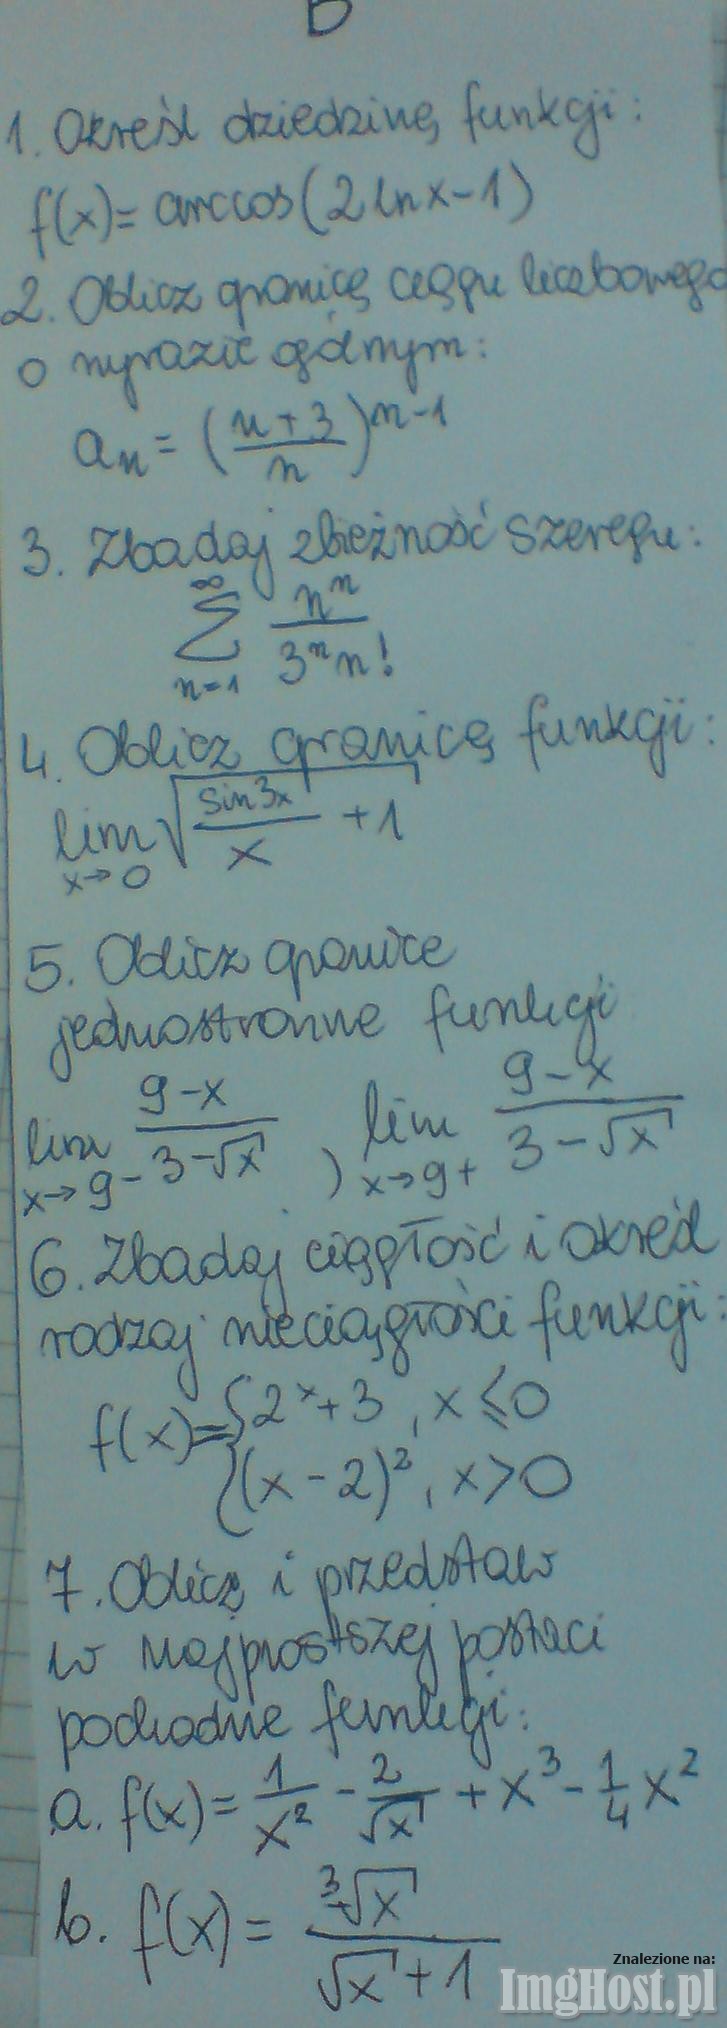 B
1. Określ dziedzinę funkcji:
f(x) = arccos(2lnx-1)
2. Oblicz granicę ciągu liczbowego
o wyrazie ogólnym:
aₙ = ((n+3)/n)ⁿ⁻¹
3. Zbadaj zbieżność szeregu:
∞ ∑ n=1 nⁿ/(3ⁿn!)
4. Oblicz granicę funkcji:
lim x→0 √(sin3x/x + 1)
5. Oblicz granice
jednostronne funkcji
lim x→9- (9-x)/(3-√x) , lim x→9+ (9-x)/(3-√x)
6. Zbadaj ciągłość i określ
rodzaj nieciągłości funkcji:
f(x) = { 2ˣ+3, x ≤ 0
(x-2)², x > 0
7. Oblicz i przedstaw
w najprostszej postaci
pochodne funkcji:
a. f(x) = 1/x² - 2/√x + x³ - 1/4 x²
b. f(x) = ³√x/(√x+1)
Znalezione na:
ImgHost.pl